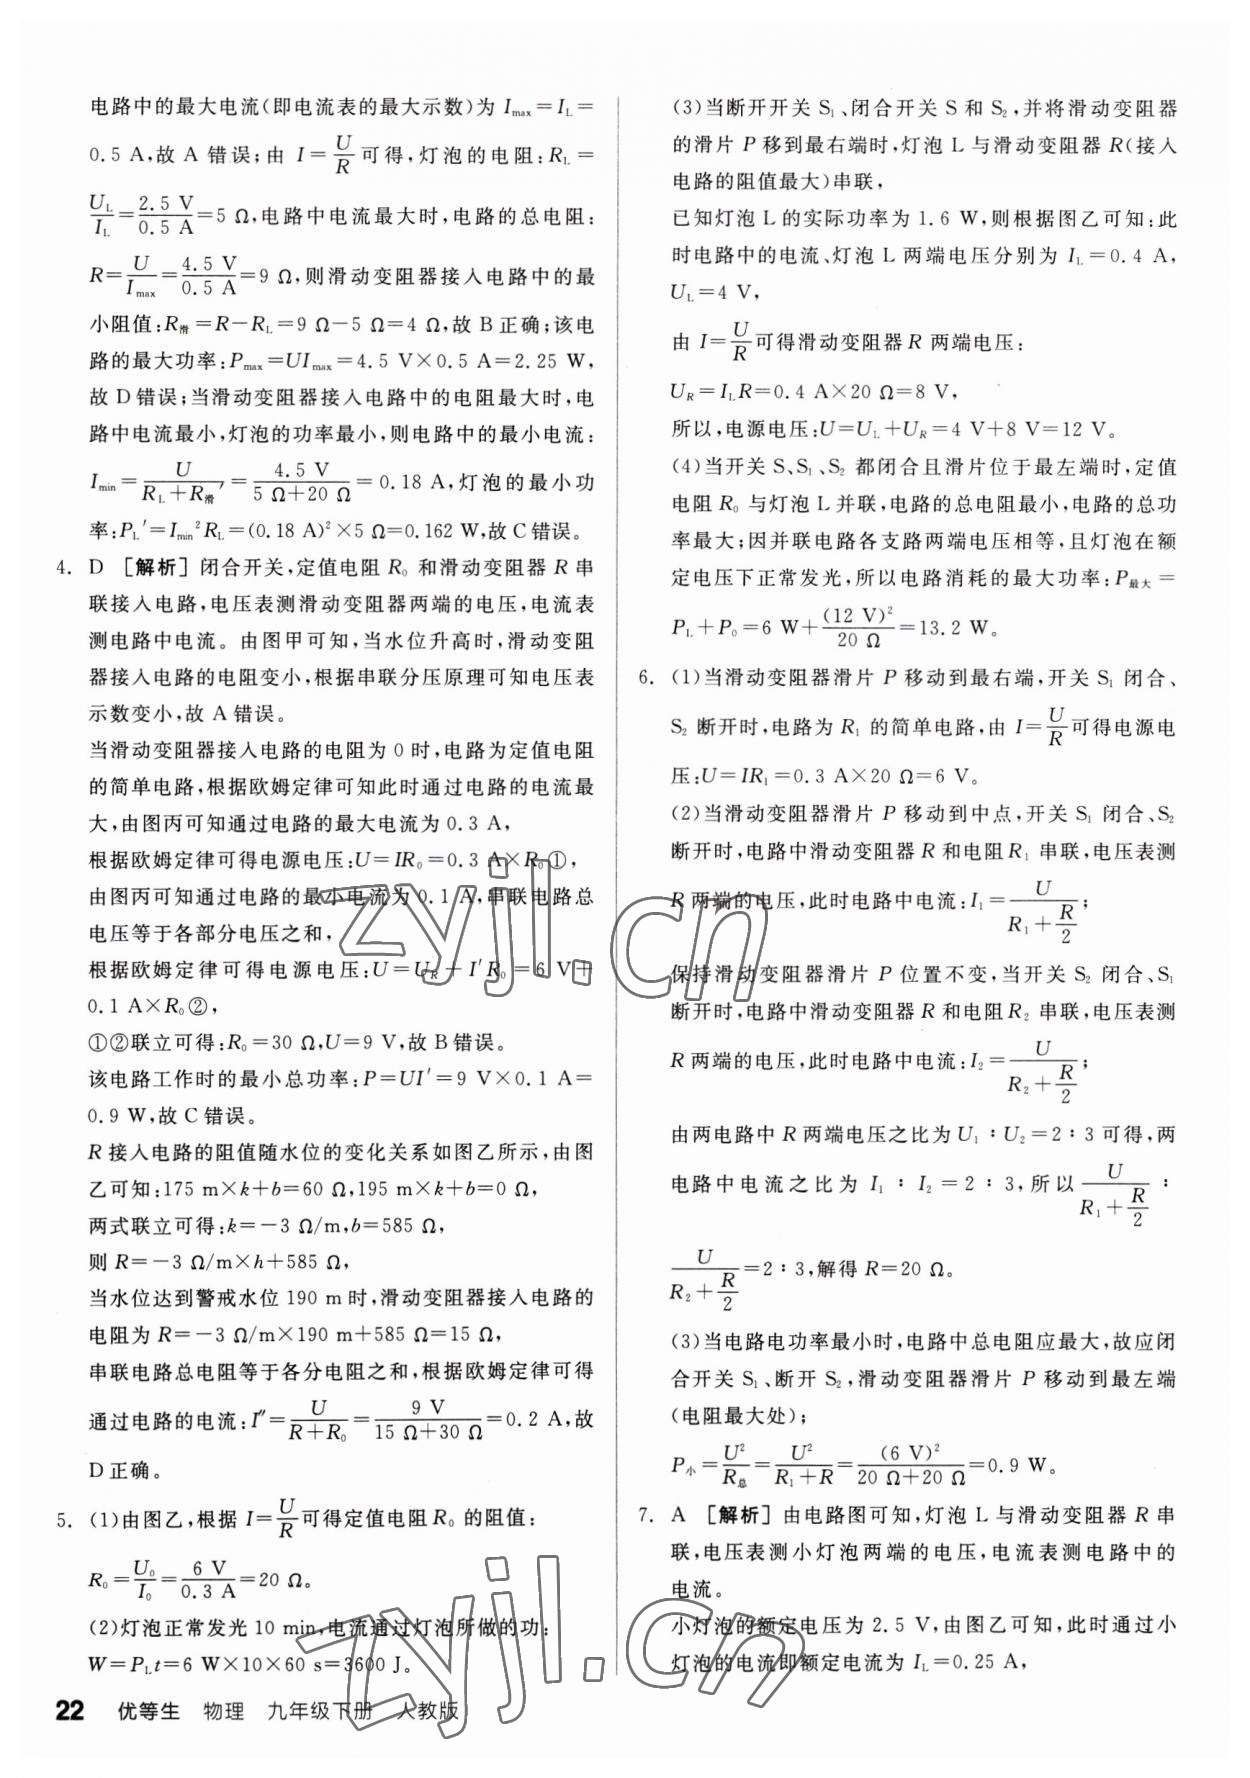 电路中的最大电流(即电流表的最大示数)为 Imax=IL=
0.5 A,故 A 错误;由 I=U/R可得,灯泡的电阻:RL=
UL/IL=2.5 V/0.5 A=5 Ω,电路中电流最大时,电路的总电阻:
R=U/Imax=4.5 V/0.5 A=9 Ω,则滑动变阻器接入电路中的最
小阻值:R滑=R-RL=9 Ω-5 Ω=4 Ω,故 B 正确;该电
路的最大功率:Pmax=UImax=4.5 V×0.5 A=2.25 W,
故 D 错误;当滑动变阻器接入电路中的电阻最大时,电
路中电流最小,灯泡的功率最小,则电路中的最小电流:
Imin=U/(RL+R滑′)=4.5 V/(5 Ω+20 Ω)=0.18 A,灯泡的最小功
率:PL′=Imin²RL=(0.18 A)²×5 Ω=0.162 W,故 C 错误。
4. D [解析] 闭合开关,定值电阻 R0 和滑动变阻器 R 串
联接入电路,电压表测滑动变阻器两端的电压,电流表
测电路中电流。由图甲可知,当水位升高时,滑动变阻
器接入电路的电阻变小,根据串联分压原理可知电压表
示数变小,故 A 错误。
当滑动变阻器接入电路的电阻为 0 时,电路为定值电阻
的简单电路,根据欧姆定律可知此时通过电路的电流最
大,由图丙可知通过电路的最大电流为 0.3 A,
根据欧姆定律可得电源电压:U=IR0=0.3 A×R0①,
由图丙可知通过电路的最小电流为 0.1 A,串联电路总
电压等于各部分电压之和,
根据欧姆定律可得电源电压:U=UR+I′R0=6 V+
0.1 A×R0②,
①②联立可得:R0=30 Ω,U=9 V,故 B 错误。
该电路工作时的最小总功率:P=UI′=9 V×0.1 A=
0.9 W,故 C 错误。
R 接入电路的阻值随水位的变化关系如图乙所示,由图
乙可知:175 m×k+b=60 Ω,195 m×k+b=0 Ω,
两式联立可得:k=-3 Ω/m,b=585 Ω,
则 R=-3 Ω/m×h+585 Ω,
当水位达到警戒水位 190 m 时,滑动变阻器接入电路的
电阻为 R=-3 Ω/m×190 m+585 Ω=15 Ω,
串联电路总电阻等于各分电阻之和,根据欧姆定律可得
通过电路的电流:I″=U/(R+R0)=9 V/(15 Ω+30 Ω)=0.2 A,故
D 正确。
5. (1)由图乙,根据 I=U/R可得定值电阻 R0 的阻值:
R0=U0/I0=6 V/0.3 A=20 Ω。
(2)灯泡正常发光 10 min,电流通过灯泡所做的功:
W=PLt=6 W×10×60 s=3600 J。
(3)当断开开关 S1、闭合开关 S 和 S2,并将滑动变阻器
的滑片 P 移到最右端时,灯泡 L 与滑动变阻器 R(接入
电路的阻值最大)串联,
已知灯泡 L 的实际功率为 1.6 W,则根据图乙可知:此
时电路中的电流、灯泡 L 两端电压分别为 IL=0.4 A,
UL=4 V,
由 I=U/R可得滑动变阻器 R 两端电压:
UR=ILR=0.4 A×20 Ω=8 V,
所以,电源电压:U=UL+UR=4 V+8 V=12 V。
(4)当开关 S、S1、S2 都闭合且滑片位于最左端时,定值
电阻 R0 与灯泡 L 并联,电路的总电阻最小,电路的总功
率最大;因并联电路各支路两端电压相等,且灯泡在额
定电压下正常发光,所以电路消耗的最大功率:P最大=
PL+P0=6 W+(12 V)²/20 Ω=13.2 W。
6. (1)当滑动变阻器滑片 P 移动到最右端,开关 S1 闭合、
S2 断开时,电路为 R1 的简单电路,由 I=U/R可得电源电
压:U=IR1=0.3 A×20 Ω=6 V。
(2)当滑动变阻器滑片 P 移动到中点,开关 S1 闭合、S2
断开时,电路中滑动变阻器 R 和电阻 R1 串联,电压表测
R 两端的电压,此时电路中电流:I1=U/(R1+R/2);
保持滑动变阻器滑片 P 位置不变,当开关 S2 闭合、S1
断开时,电路中滑动变阻器 R 和电阻 R2 串联,电压表测
R 两端的电压,此时电路中电流:I2=U/(R2+R/2);
由两电路中 R 两端电压之比为 U1∶U2=2∶3 可得,两
电路中电流之比为 I1∶I2=2∶3,所以U/(R1+R/2)∶
U/(R2+R/2)=2∶3,解得 R=20 Ω。
(3)当电路电功率最小时,电路中总电阻应最大,故应闭
合开关 S1、断开 S2,滑动变阻器滑片 P 移动到最左端
(电阻最大处);
P小=U²/R总=U²/(R1+R)=(6 V)²/(20 Ω+20 Ω)=0.9 W。
7. A [解析] 由电路图可知,灯泡 L 与滑动变阻器 R 串
联,电压表测小灯泡两端的电压,电流表测电路中的
电流。
小灯泡的额定电压为 2.5 V,由图乙可知,此时通过小
灯泡的电流即额定电流为 IL=0.25 A,
22 优等生 物理 九年级下册 人教版
zyjl.cn
zyjl.cn